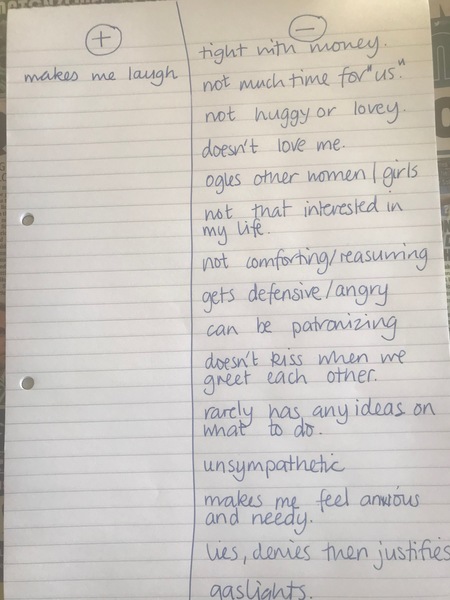 +
makes me laugh
−
tight with money.
not much time for "us".
not huggy or lovey.
doesn't love me.
ogles other women / girls
not that interested in
my life.
not comforting/reassuring
gets defensive/angry
can be patronizing
doesn't kiss when we
greet each other.
rarely has any ideas on
what to do.
unsympathetic
makes me feel anxious
and needy.
lies, denies then justifies
gaslights.